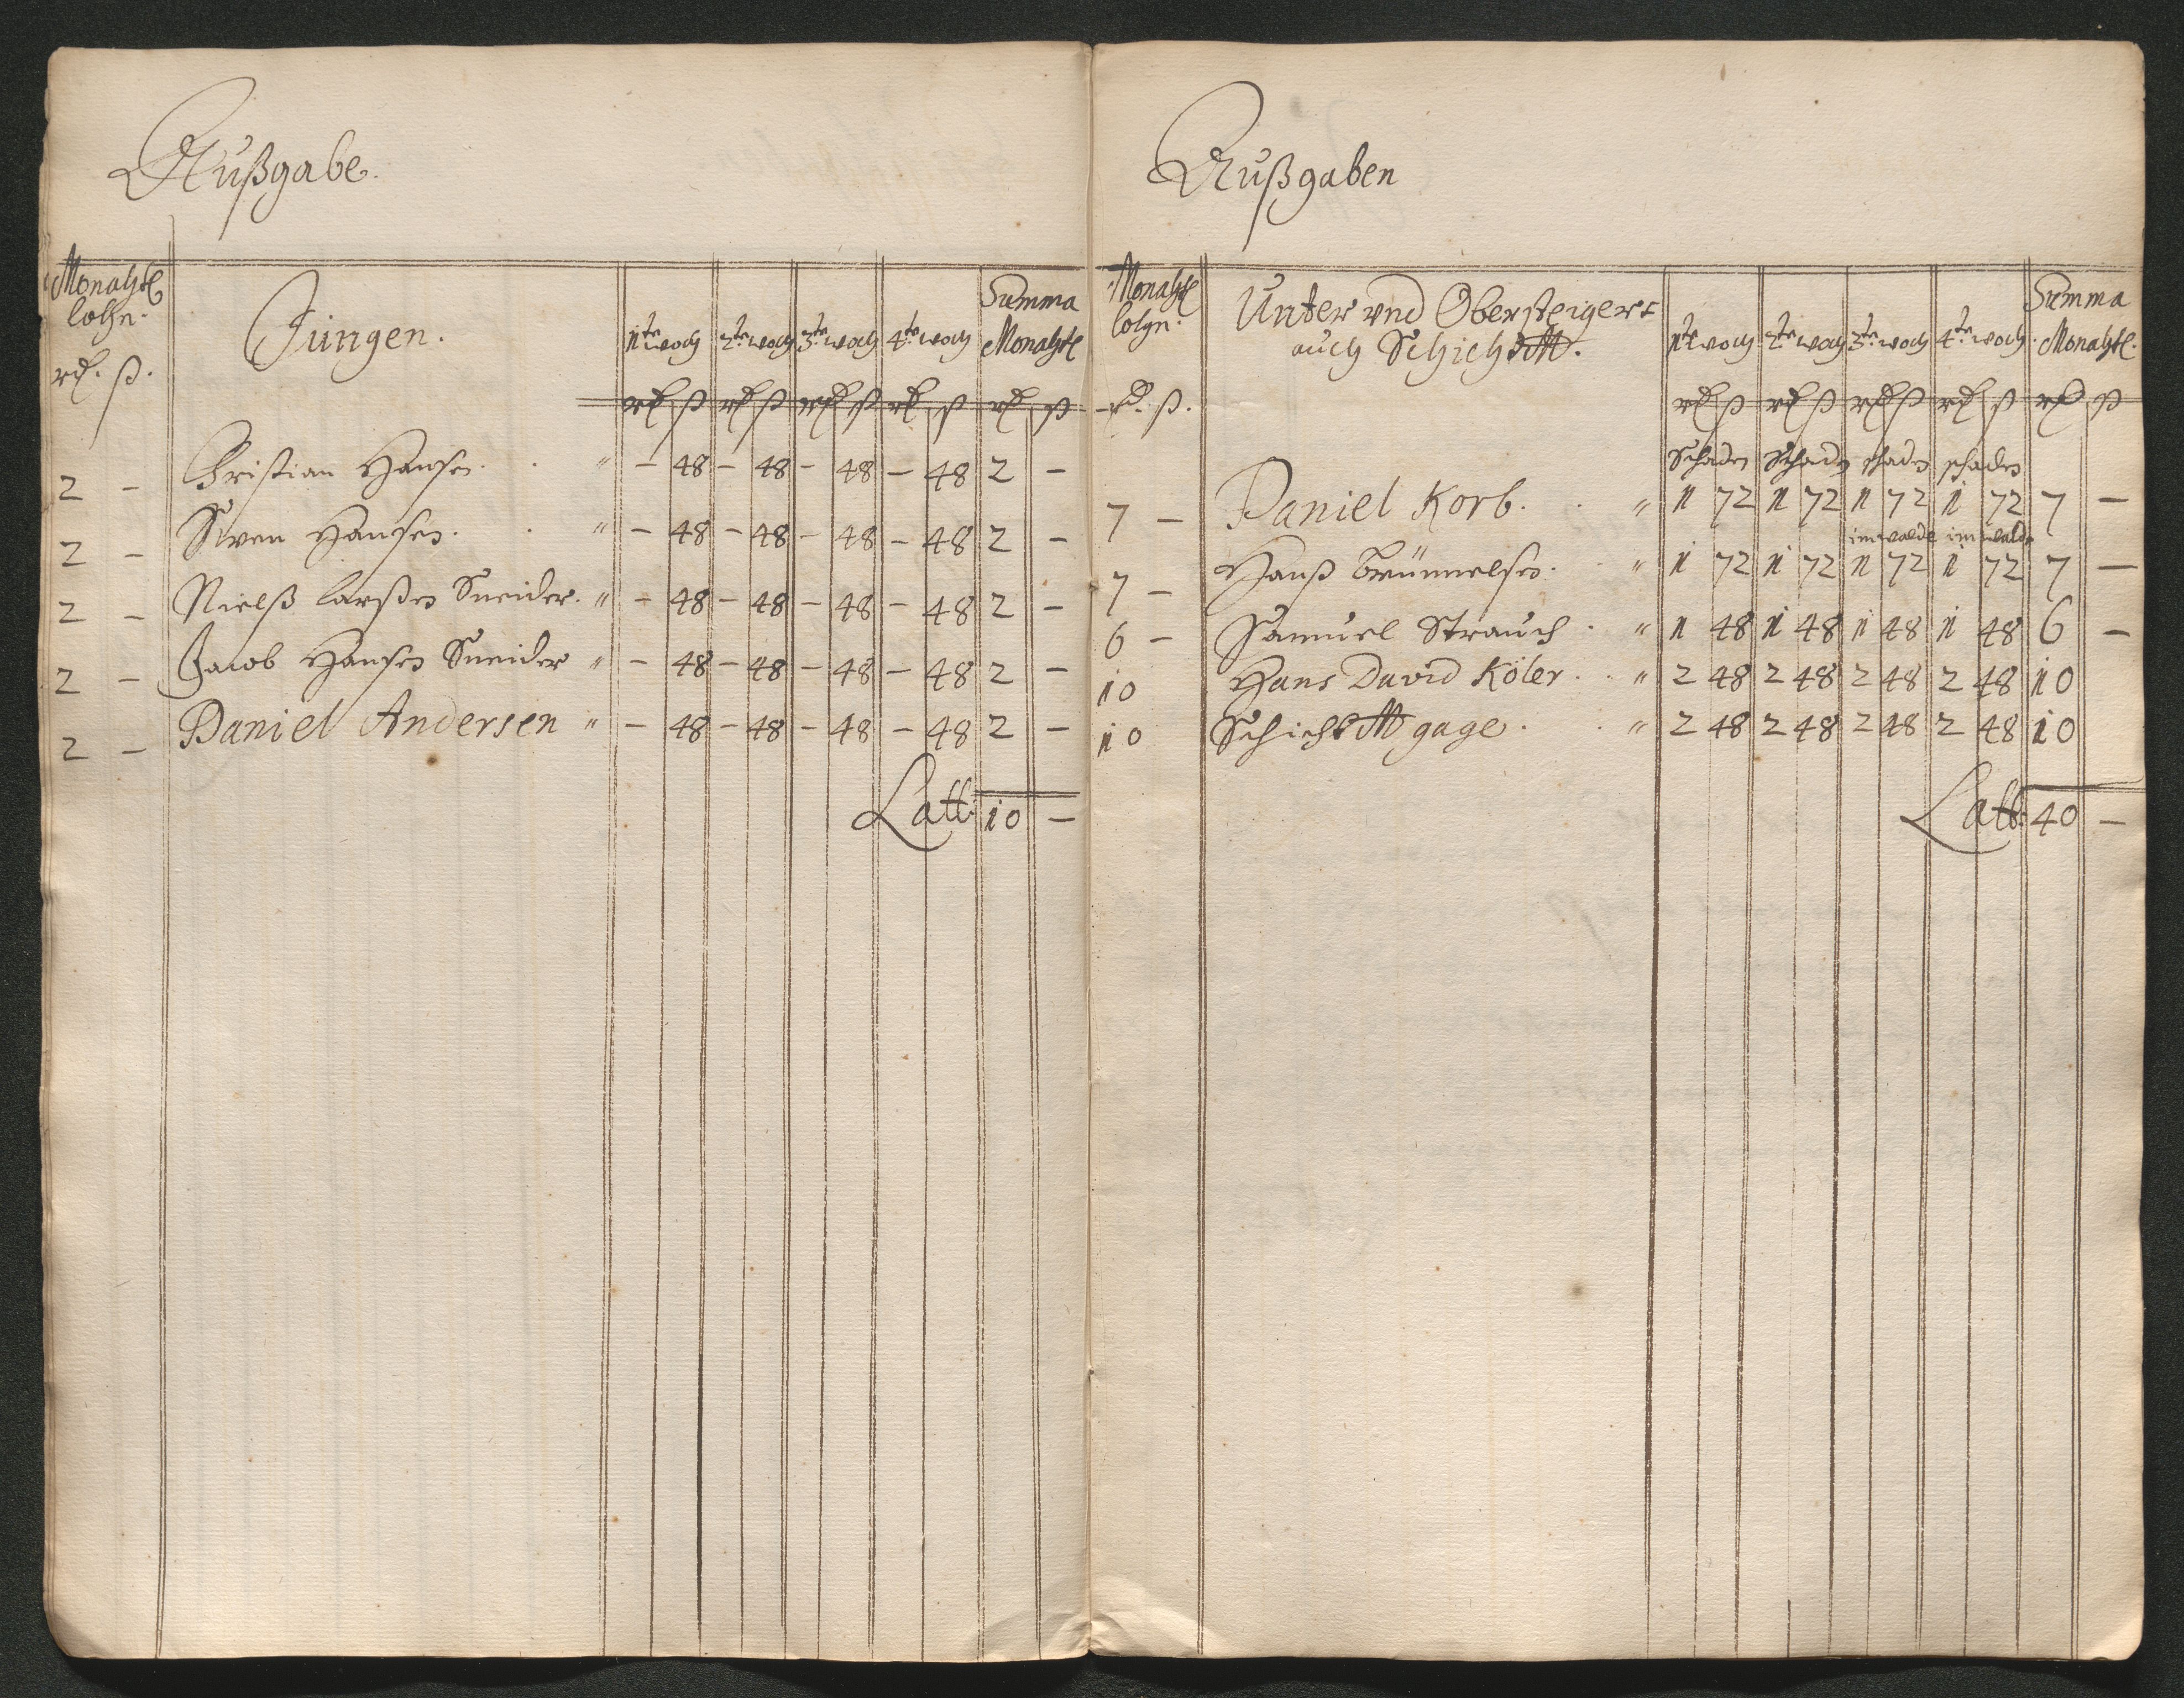 Außgabe.
Monahtl lohn. Jüngen. 1te woch 2te woch 3te woch 4te woch Summa Monahtl
rd. ß. rd ß rd ß rd ß rd ß rd ß
2 – Christian Hansen. . " – 48 – 48 – 48 – 48 2 –
2 – Swen Hansen. . " – 48 – 48 – 48 – 48 2 –
2 – Nielß Larßen Sneider. " – 48 – 48 – 48 – 48 2 –
2 – Jacob Hansen Sneider " – 48 – 48 – 48 – 48 2 –
2 – Daniel Andersen " – 48 – 48 – 48 – 48 2 –
Latt. 10 –
Außgaben
Monahtl lohn. Unter und Obersteigers auch Schicht M. 1te woch 2te woch 3te woch 4te woch. Summa Monahtl.
rd. ß. rd ß rd ß rd ß rd ß rd ß
Schaden Schaden schaden schaden
7 – Daniel Korb. . " 1 72 1 72 1 72 1 72 7 –
im walde im walde
7 – Hanß Brünnelsen. . " 1 72 1 72 1 72 1 72 7 –
6 – Samuel Strauch . " 1 48 1 48 1 48 1 48 6 –
10 Hans David Köler. . " 2 48 2 48 2 48 2 48 10
10 Schicht M gage. . " 2 48 2 48 2 48 2 48 10
Latt. 40 –